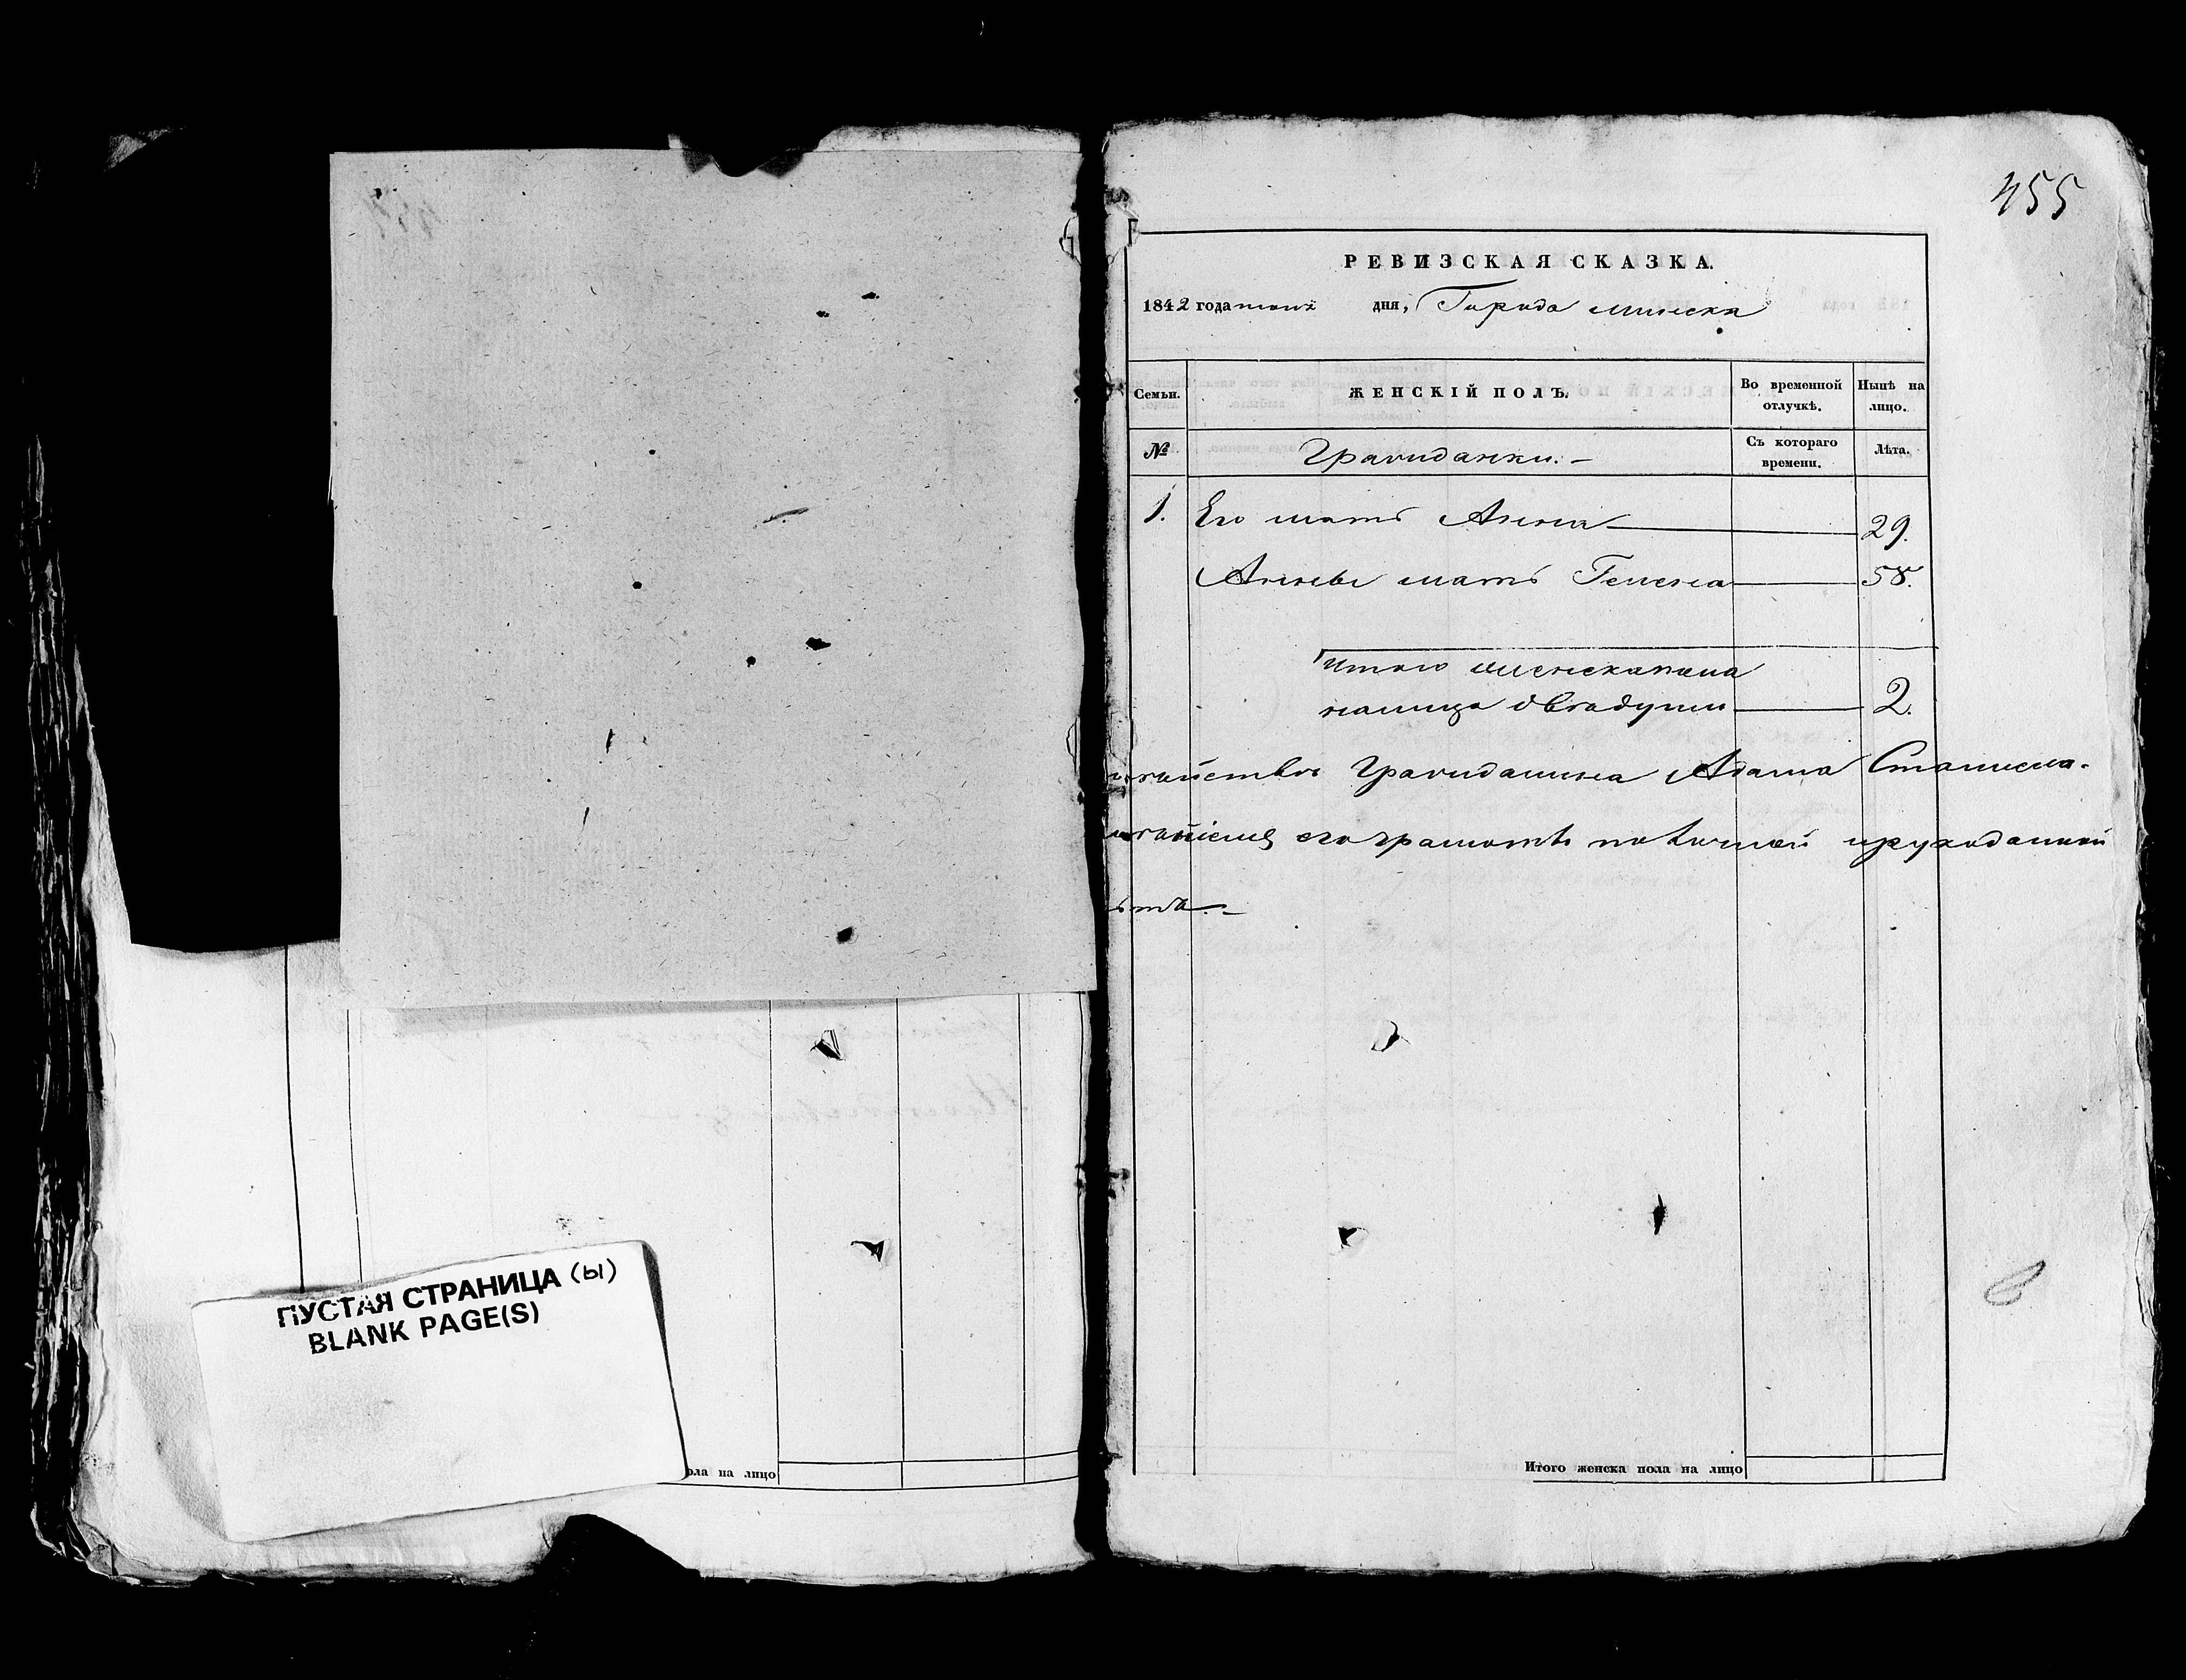 455
РЕВИЗСКАЯ СКАЗКА.
1842 года дня, Города Минска
Семьи. ЖЕНСКІЙ ПОЛЪ. Во временной отлучкѣ. Нынѣ на лицо.
№ Гражданки. – Съ котораго времени. Лѣта.
1. Его мать Анна 29.
Анны мать Гелена 58.
Итого женска пола
налицо двѣ души 2.
Гражданина Адама Станисла-
его грамотѣ по личной
ПУСТАЯ СТРАНИЦА (Ы)
BLANK PAGE(S)
ола на лицо
Итого женска пола на лицо